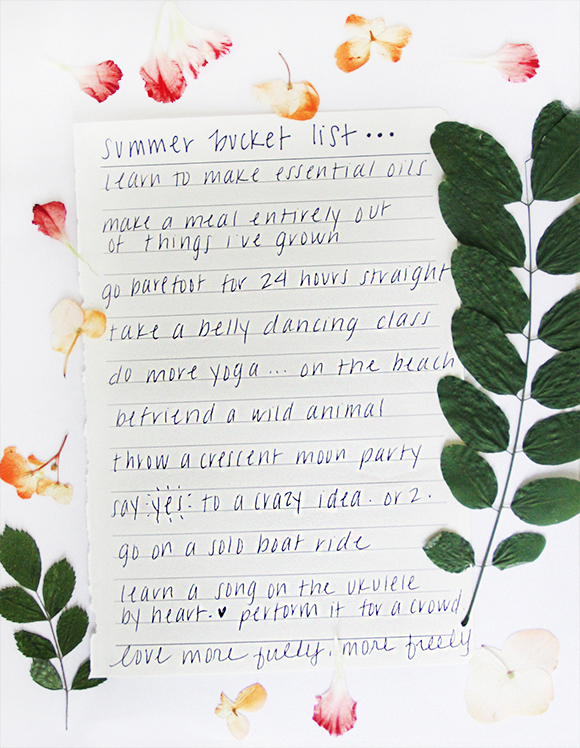 summer bucket list...
learn to make essential oils
make a meal entirely out
of things i've grown
go barefoot for 24 hours straight
take a belly dancing class
do more yoga... on the beach
befriend a wild animal
throw a crescent moon party
say yes to a crazy idea. or 2.
go on a solo boat ride
learn a song on the ukulele
by heart. ♥ perform it for a crowd
love more fully, more freely